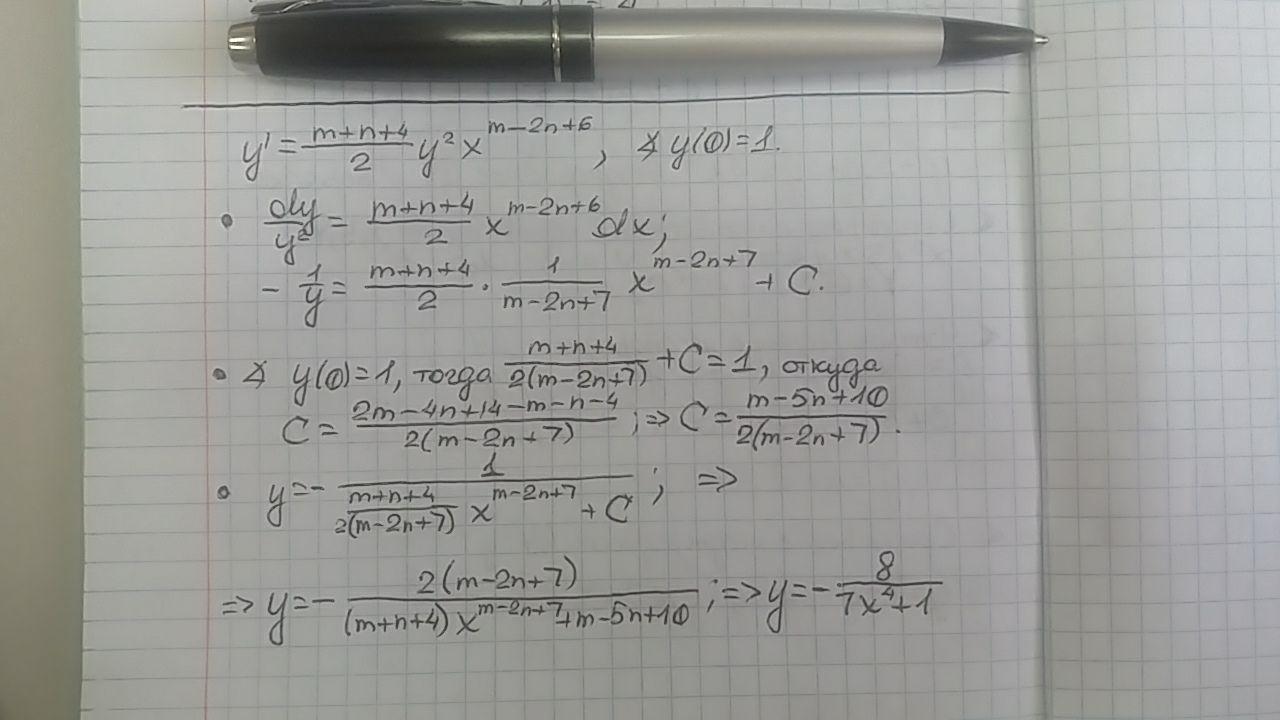 y' = \frac{m+n+4}{2} y^2 x^{m-2n+6}, ∡ y(0)=1.
• \frac{dy}{y^2} = \frac{m+n+4}{2} x^{m-2n+6} dx;
-\frac{1}{y} = \frac{m+n+4}{2} · \frac{1}{m-2n+7} x^{m-2n+7} + C.
• ∡ y(0)=1, тогда \frac{m+n+4}{2(m-2n+7)} + C = 1, откуда
C = \frac{2m-4n+14-m-n-4}{2(m-2n+7)}; => C = \frac{m-5n+10}{2(m-2n+7)}.
• y = -\frac{1}{\frac{m+n+4}{2(m-2n+7)} x^{m-2n+7} + C}; =>
=> y = -\frac{2(m-2n+7)}{(m+n+4) x^{m-2n+7} + m-5n+10}; => y = -\frac{8}{7x^4+1}